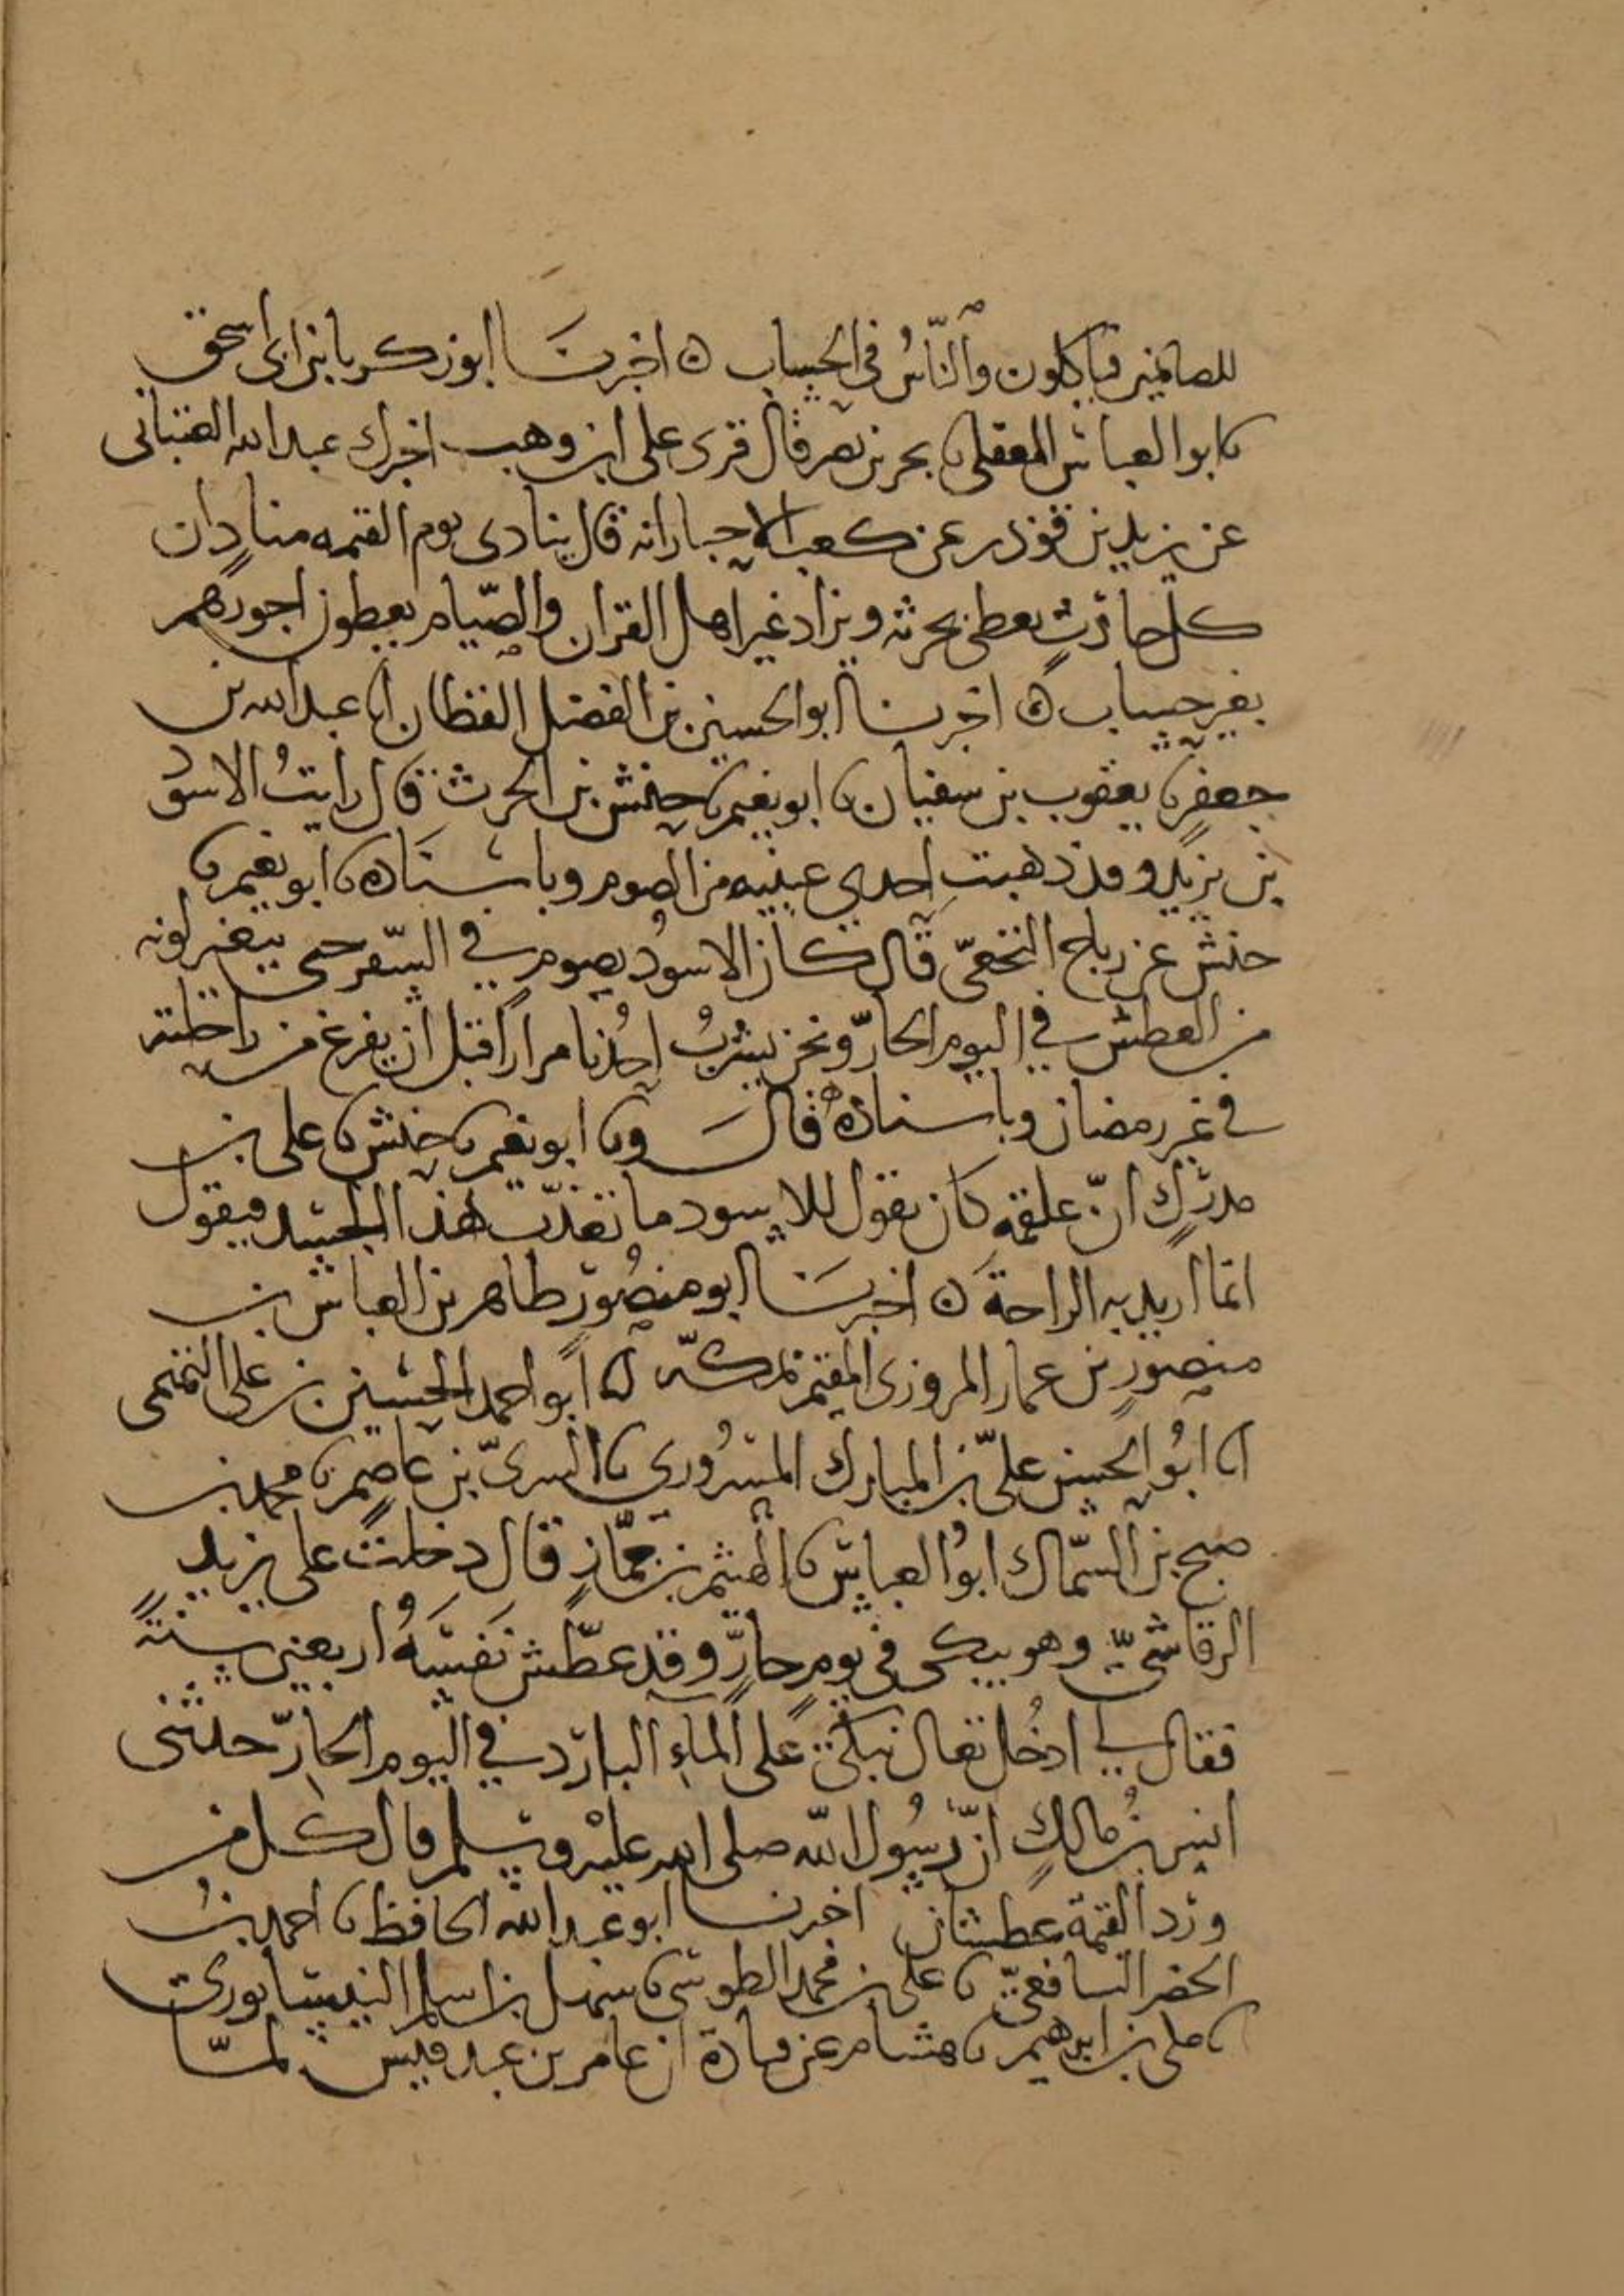 للصائمين فيأكلون والنَّاسُ في الحساب ه اخبرنَا ابو زكريا بن ابي اسحق
نا ابو العباس المعقلي نا بحر بن نصر قال قرئ على ابن وهب اخبرك عبد الله القتباني
عن يزيد بن قوذر عن كعب الاحبار انه قال ينادي يوم القيمه منادٍ ان
كل حارثٍ يعطى بحرثه ويزاد غير اهل القران والصّيام يعطون اجورهم
بغير حساب ه اخبرنا ابو الحسين بن الفضل القطان انا عبد الله بن
جعفر نا يعقوب بن سفيان نا ابو نعيم نا حنش بن الحرث قال رايتُ الاسود
بن يزيد وقد ذهبت احدى عينيه من الصوم وباسناده نا ابو نعيم نا
حنش عن رياح النخعيّ قال كان الاسودُ يصوم في السّفر حتى يتغير لونه
من العطش في اليوم الحارّ ونحن يشربُ احدُنا مرارًا قبل ان يفرغ من راحلته
في غير رمضان وباسناده قالَ ونا ابو نعيم نا حنش نا علي بن
مدركٍ انّ علقمة كان يقول للاسود ما تعذّب هذا الجسد فيقول
انما اريد به الراحةَ ه اخبرنَا ابو منصُور طاهر بن العباس بن
منصورٍ بن عمار المروزي المقيم بمكّة انا ابو احمد الحسين بن علي التميمي
انا ابُو الحسين عليّ بن المبارك المسرُوري نا السريّ بن عاصمٍ نا محمد بن
صبح بن السّماك ابوُ العباس نا الهيثم بن جمّازٍ قال دخلت على يزيد
الرقاشيّ وهو يبكي في يومٍ حارٍّ وقد عطّش نَفسَهُ اربعين سنةً
فقال لي ادخُل تعال نبكي على الماءِ البارد في اليوم الحارّ حدثني
انس بنُ مالكٍ انّ رسُول الله صلى الله عليْه وسلم قال كل من
ورد القيمة عطشان اخبرنا ابو عبد الله الحافظ نا احمد بنُ
الخضر الشافعيّ نا علي بن محمد الطوسي نا سهل بن اسلم النيسابوري
نا علي بن ابرهيم نا هشام عن قتادة ان عامر بن عبد قيس لمّا